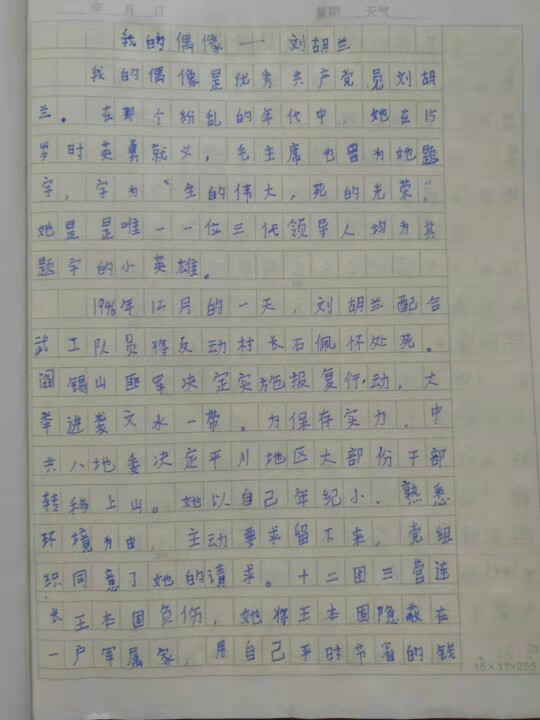 年 月 日 星期 天气
我的偶像——刘胡兰
我的偶像是优秀共产党员刘胡
兰。在那个纷乱的年代中，她在15
岁时英勇就义，毛主席也曾为她题
字，字为“生的伟大，死的光荣。”
她是是唯一一位三代领导人均为其
题字的小英雄。
1946年12月的一天，刘胡兰配合
武工队员将反动村长石佩怀处死。
阎锡山匪军决定实施报复行动，大
举进袭文水一带。为保存实力，中
共八地委决定平川地区大部份干部
转移上山。她以自己年纪小、熟悉
环境为由，主动要求留下来，党组
织同意了她的请求。十二团三营连
长王本固负伤，她将王本固隐蔽在
一户军属家，用自己平时节省的钱
15×17=255